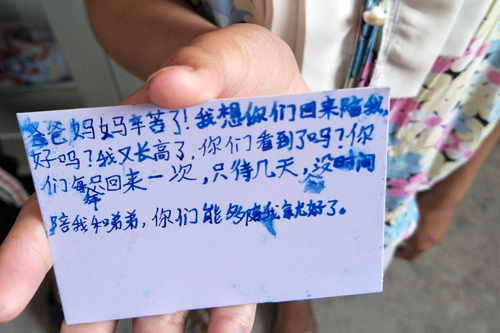 爸爸妈妈辛苦了!我想你们回来陪我,
好吗?我又长高了,你们看到了吗?你
们每年只回来一次,只待几天,没时间
陪我和弟弟,你们能够陪我就好了。